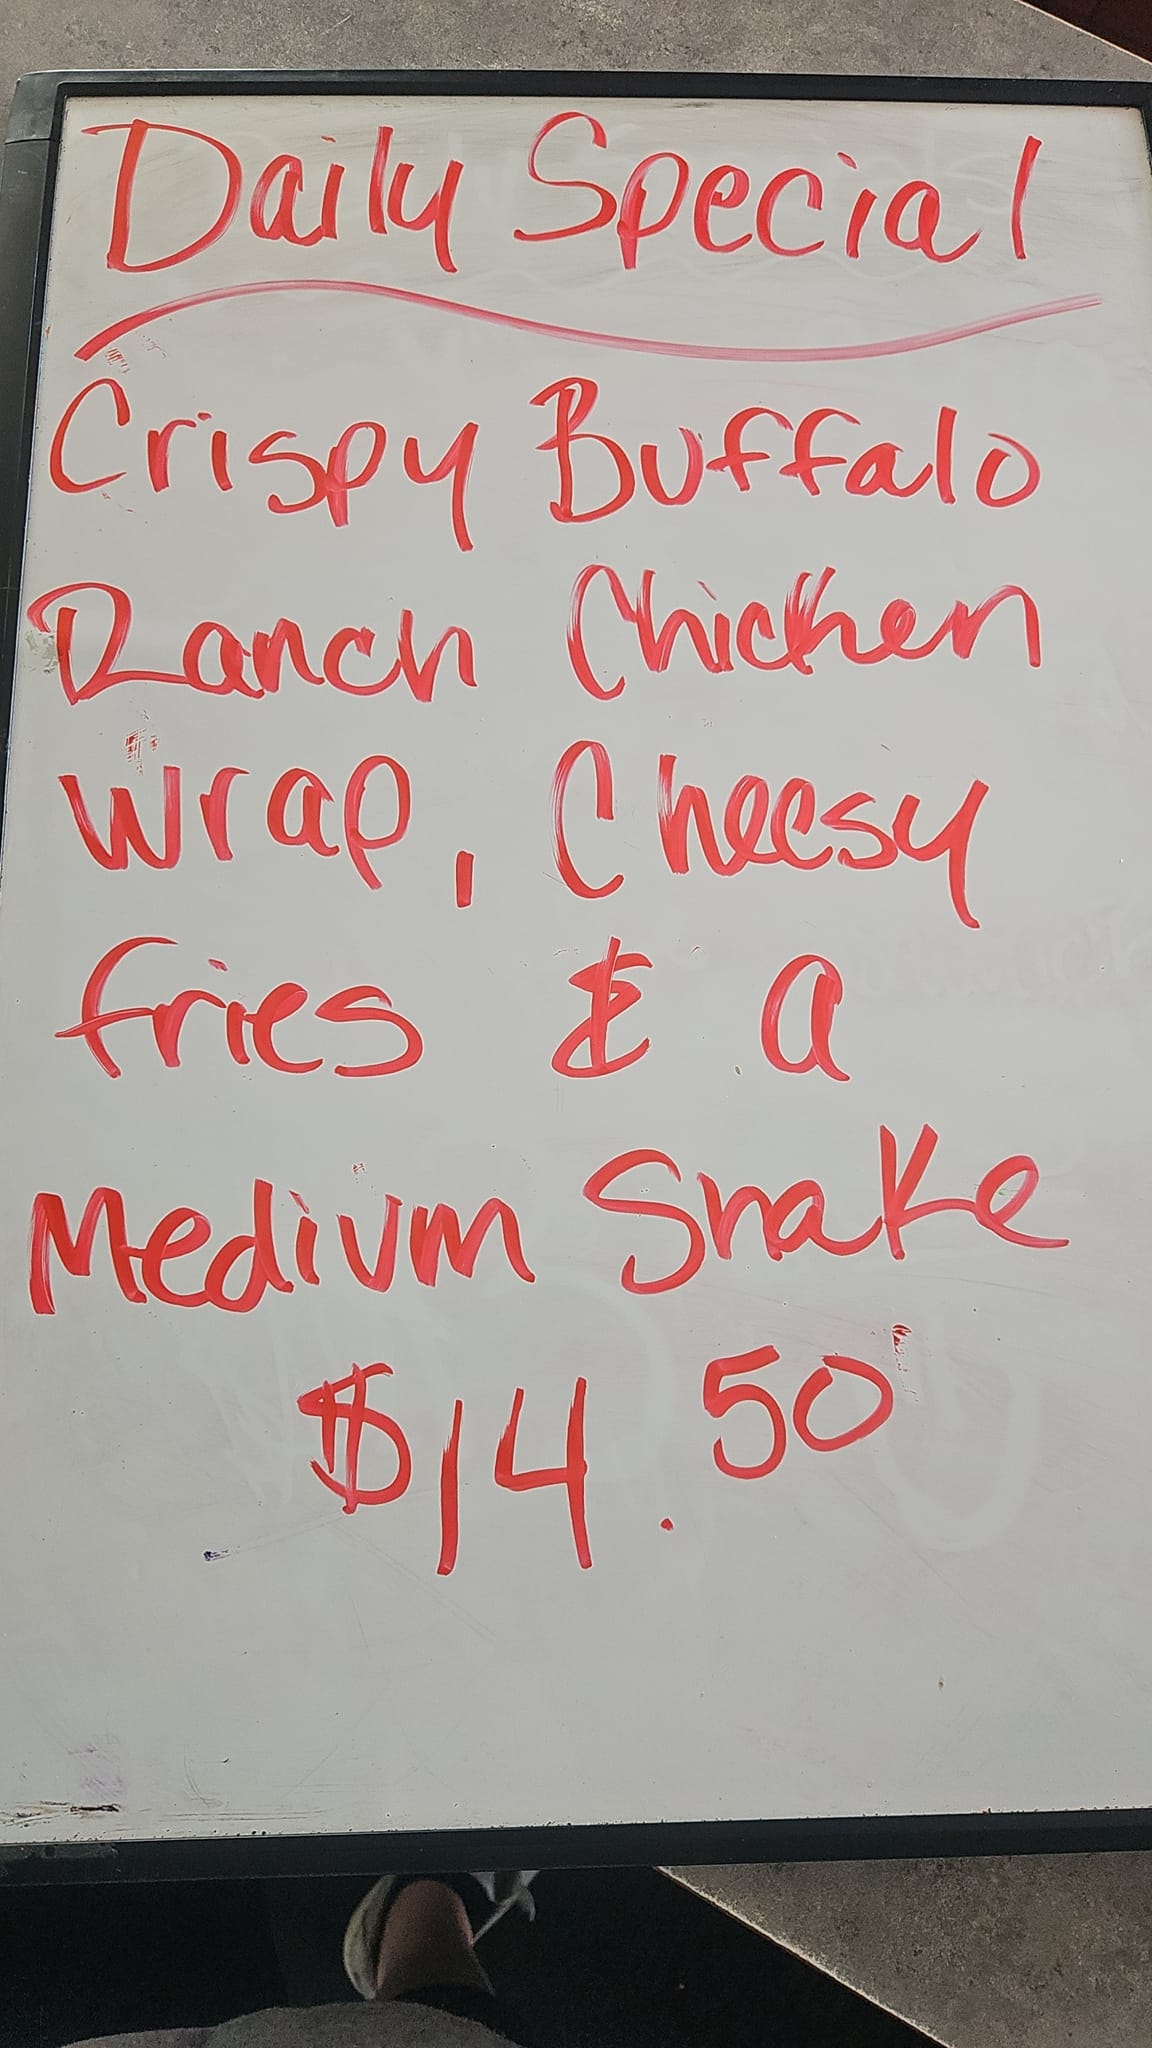 Daily Special
Crispy Buffalo
Ranch Chicken
Wrap, Cheesy
fries & a
Medium Shake
$14.50